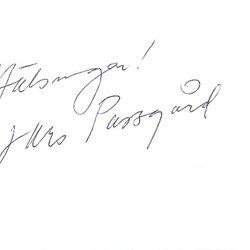 Hälsningar!
Lars Passgård